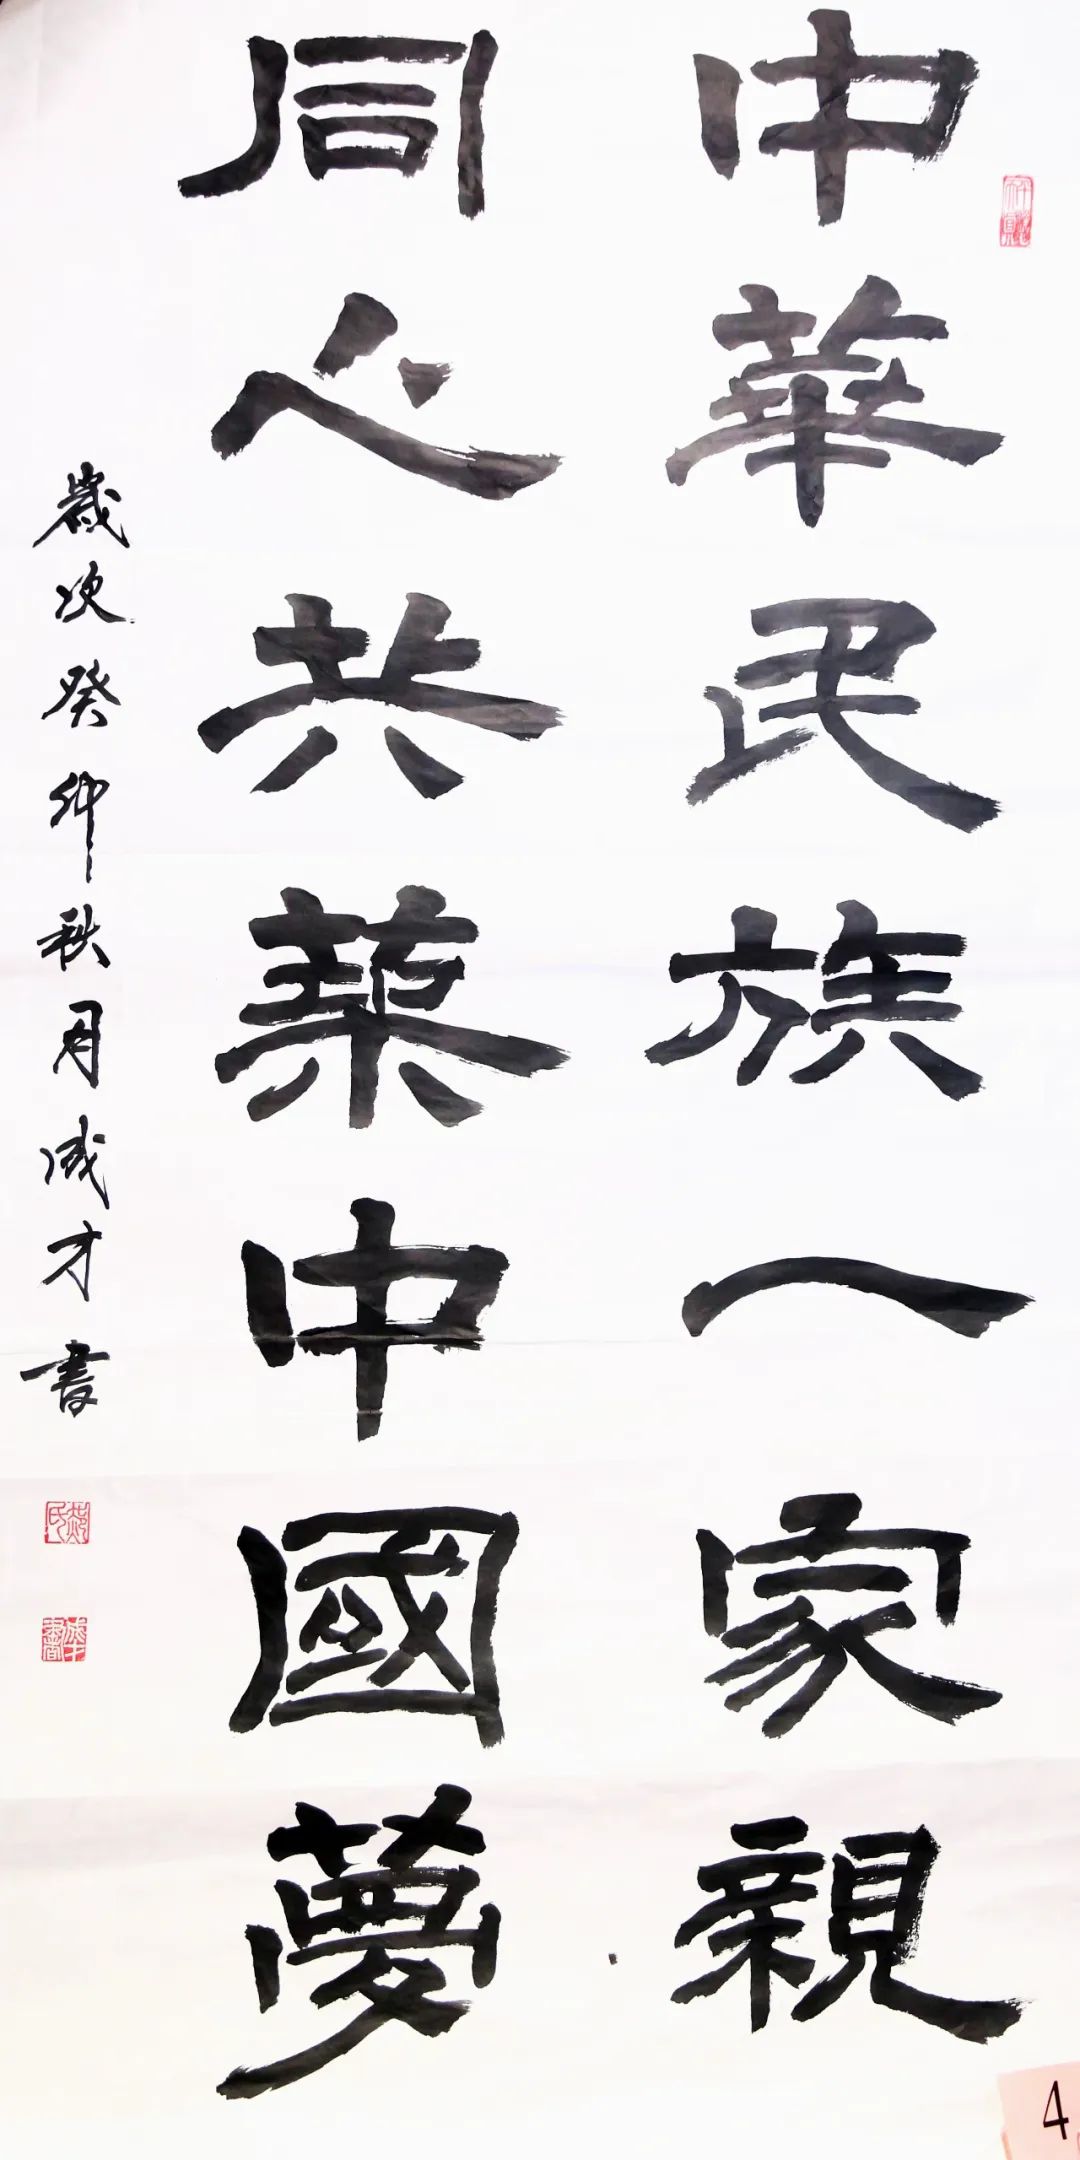 中華民族一家親
同心共築中國夢
歲次癸卯秋月成才書
4